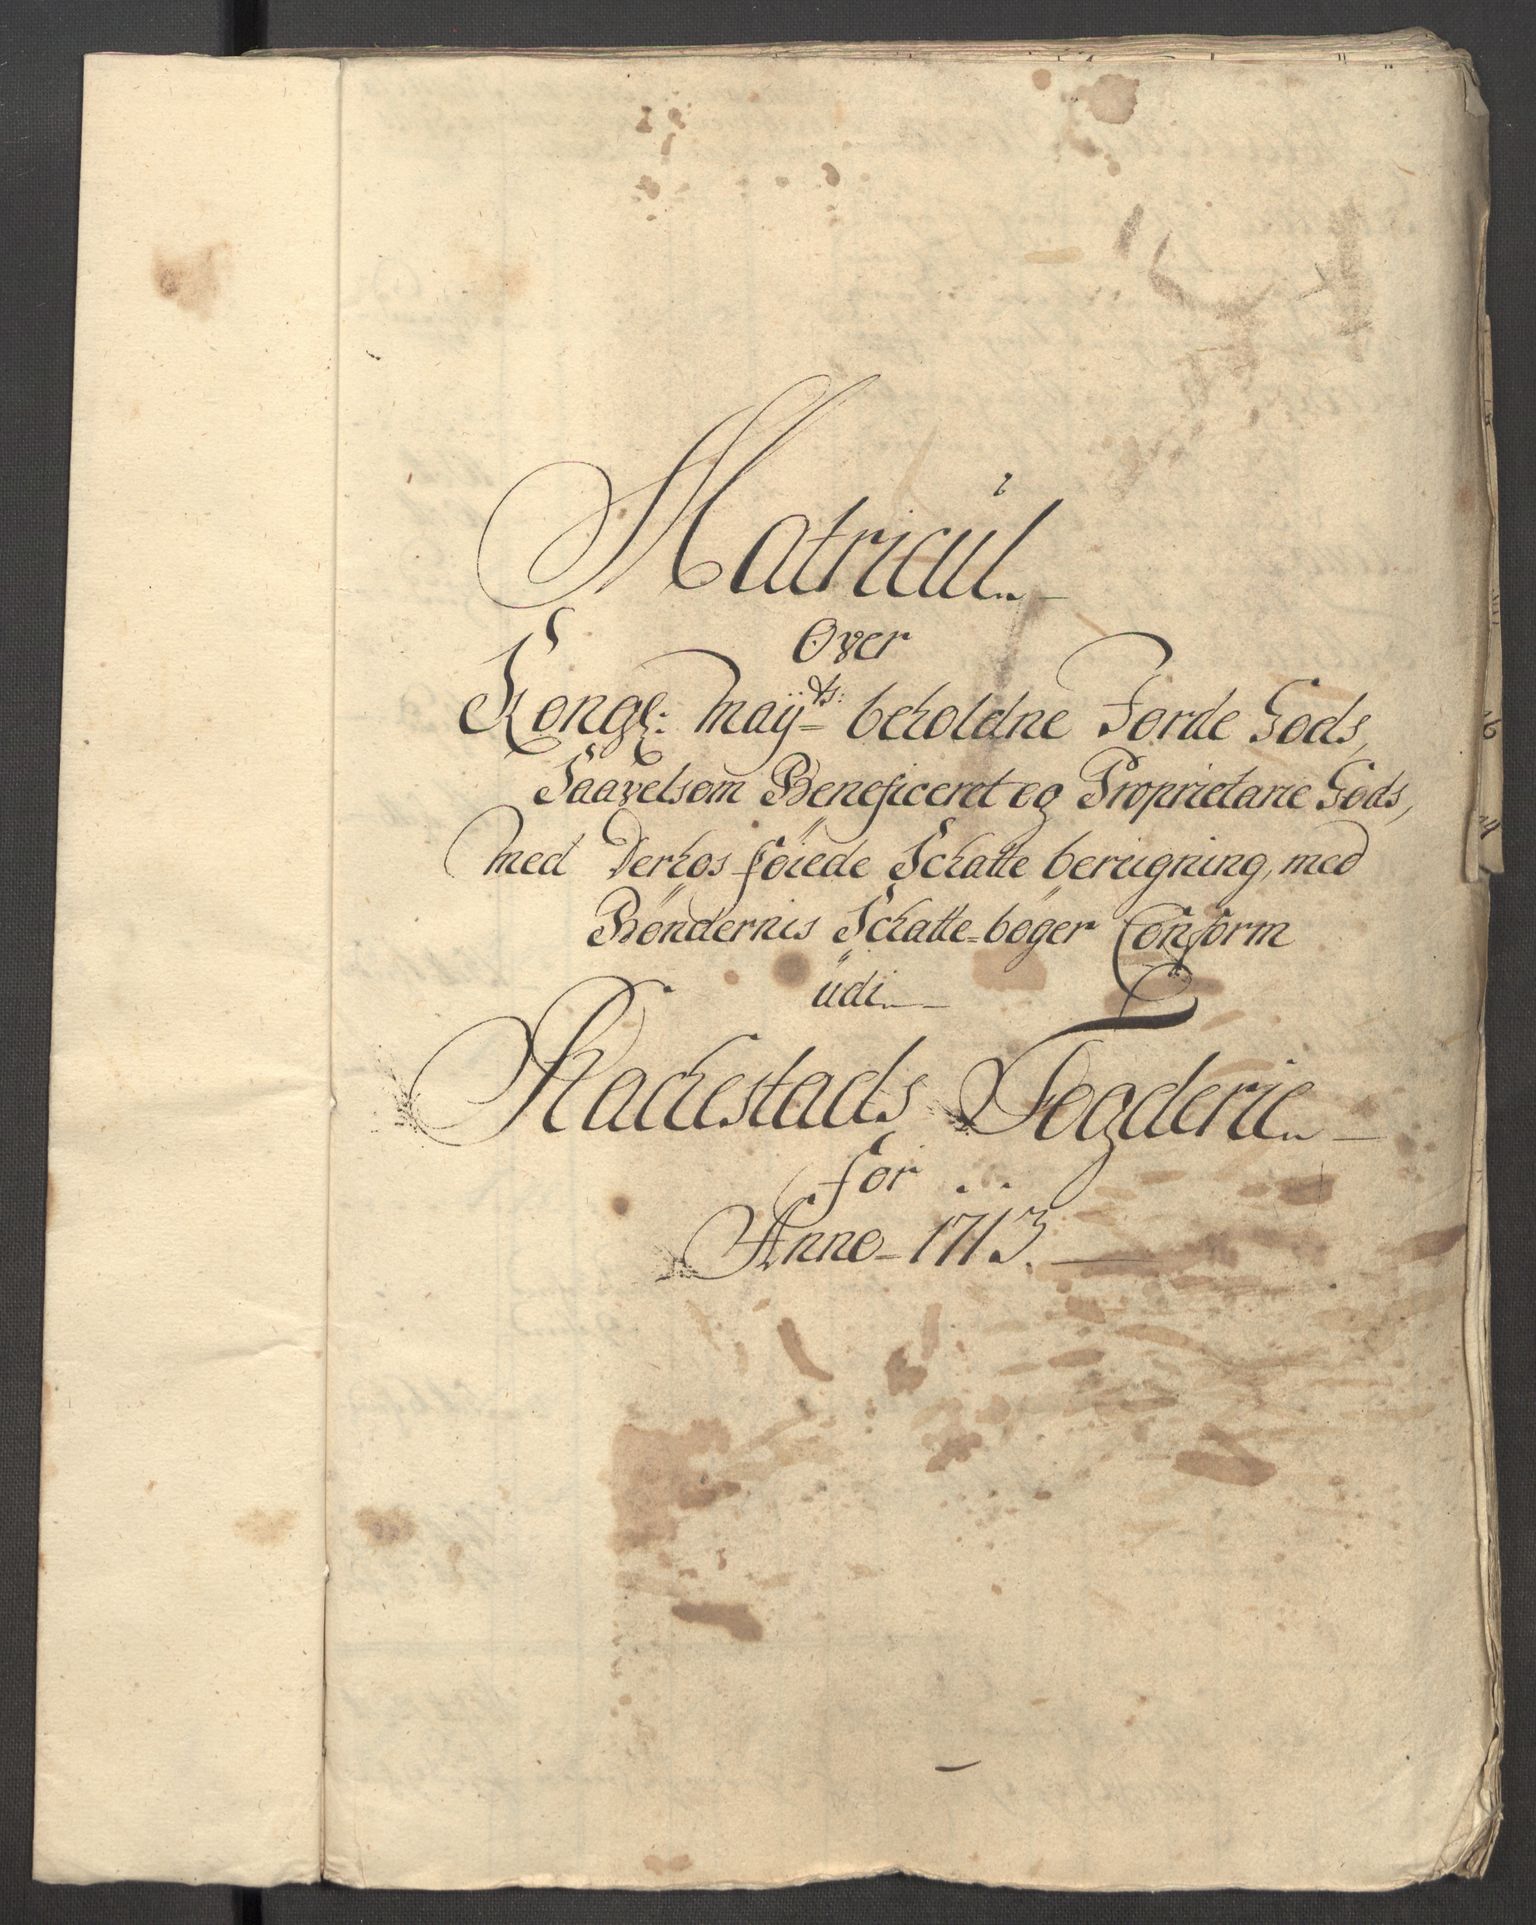 Matricul
Over
Kongl: Mayts: beholdne Jorde Gods,
Saavelsom Beneficeret og Proprietarie Gods,
med Derhos föiede Schatte beregning, med
Böndernis Schatte-böger Conform
udi
Rachestads Fogderie
for
Anno 1713.